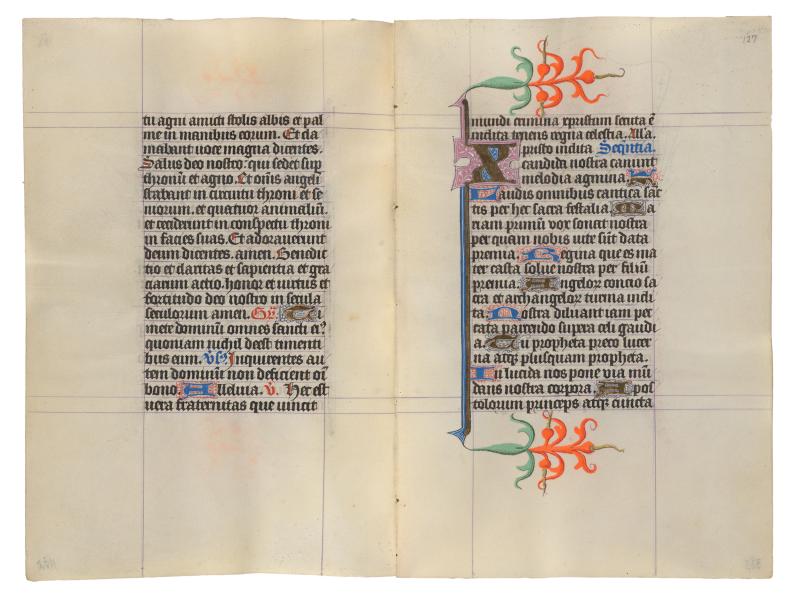 tu agni amicti stolis albis et pal
me in manibus eorum. Et cla
mabant uoce magna dicentes.
Salus deo nostro: qui sedet sup
thronū et agno. Et om̄s angeli
stabant in circuitu throni et se
niorum. et quatuor animaliū.
et ceciderunt in conspectu throni
in facies suas. Et adorauerunt
deum dicentes. amen. Benedic
tio et claritas et sapientia et gra
ciarum actio. honor et uirtus et
fortitudo deo nostro in secula
seculorum amen. Gr̄. Ti
mete dominū omnes sancti ei?
quoniam nichil deest timenti
bus eum. Inquirentes au
tem dominū non deficient oī
bono. Alleluia. V̄. Hec est
uera fraternitas que uincit
127
mundi crimina xpristum secuta ē
inclita tenens regna celestia. All'a.
Xpristo inclita Seqn̄tia.
candida nostra canunt
melodia agmina. A
Laudis omnibus cantica sac
tis per hec sacra festalia. Ma
riam primū vox sonet nostra
per quam nobis uite sūt data
premia. Regina que es ma
ter casta solue nostra per filiū
premia. Angelor̄ concio sa
cra et archangelor̄ turma indi
ta. Nostra diluant iam pec
cata parendo supera celi gaudi
a. Tu propheta preco lucer
na atq̄ plusquam propheta.
In lucida nos pone via mū
dans nostra corpora. Apos
tolorum princeps atq̄ cuncta